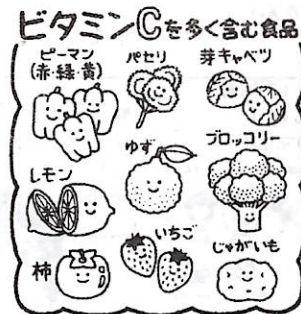 ビタミンCを多く含む食品
ピーマン
(赤・緑・黄)
パセリ
芽キャベツ
レモン
ゆず
ブロッコリー
柿
いちご
じゃがいも